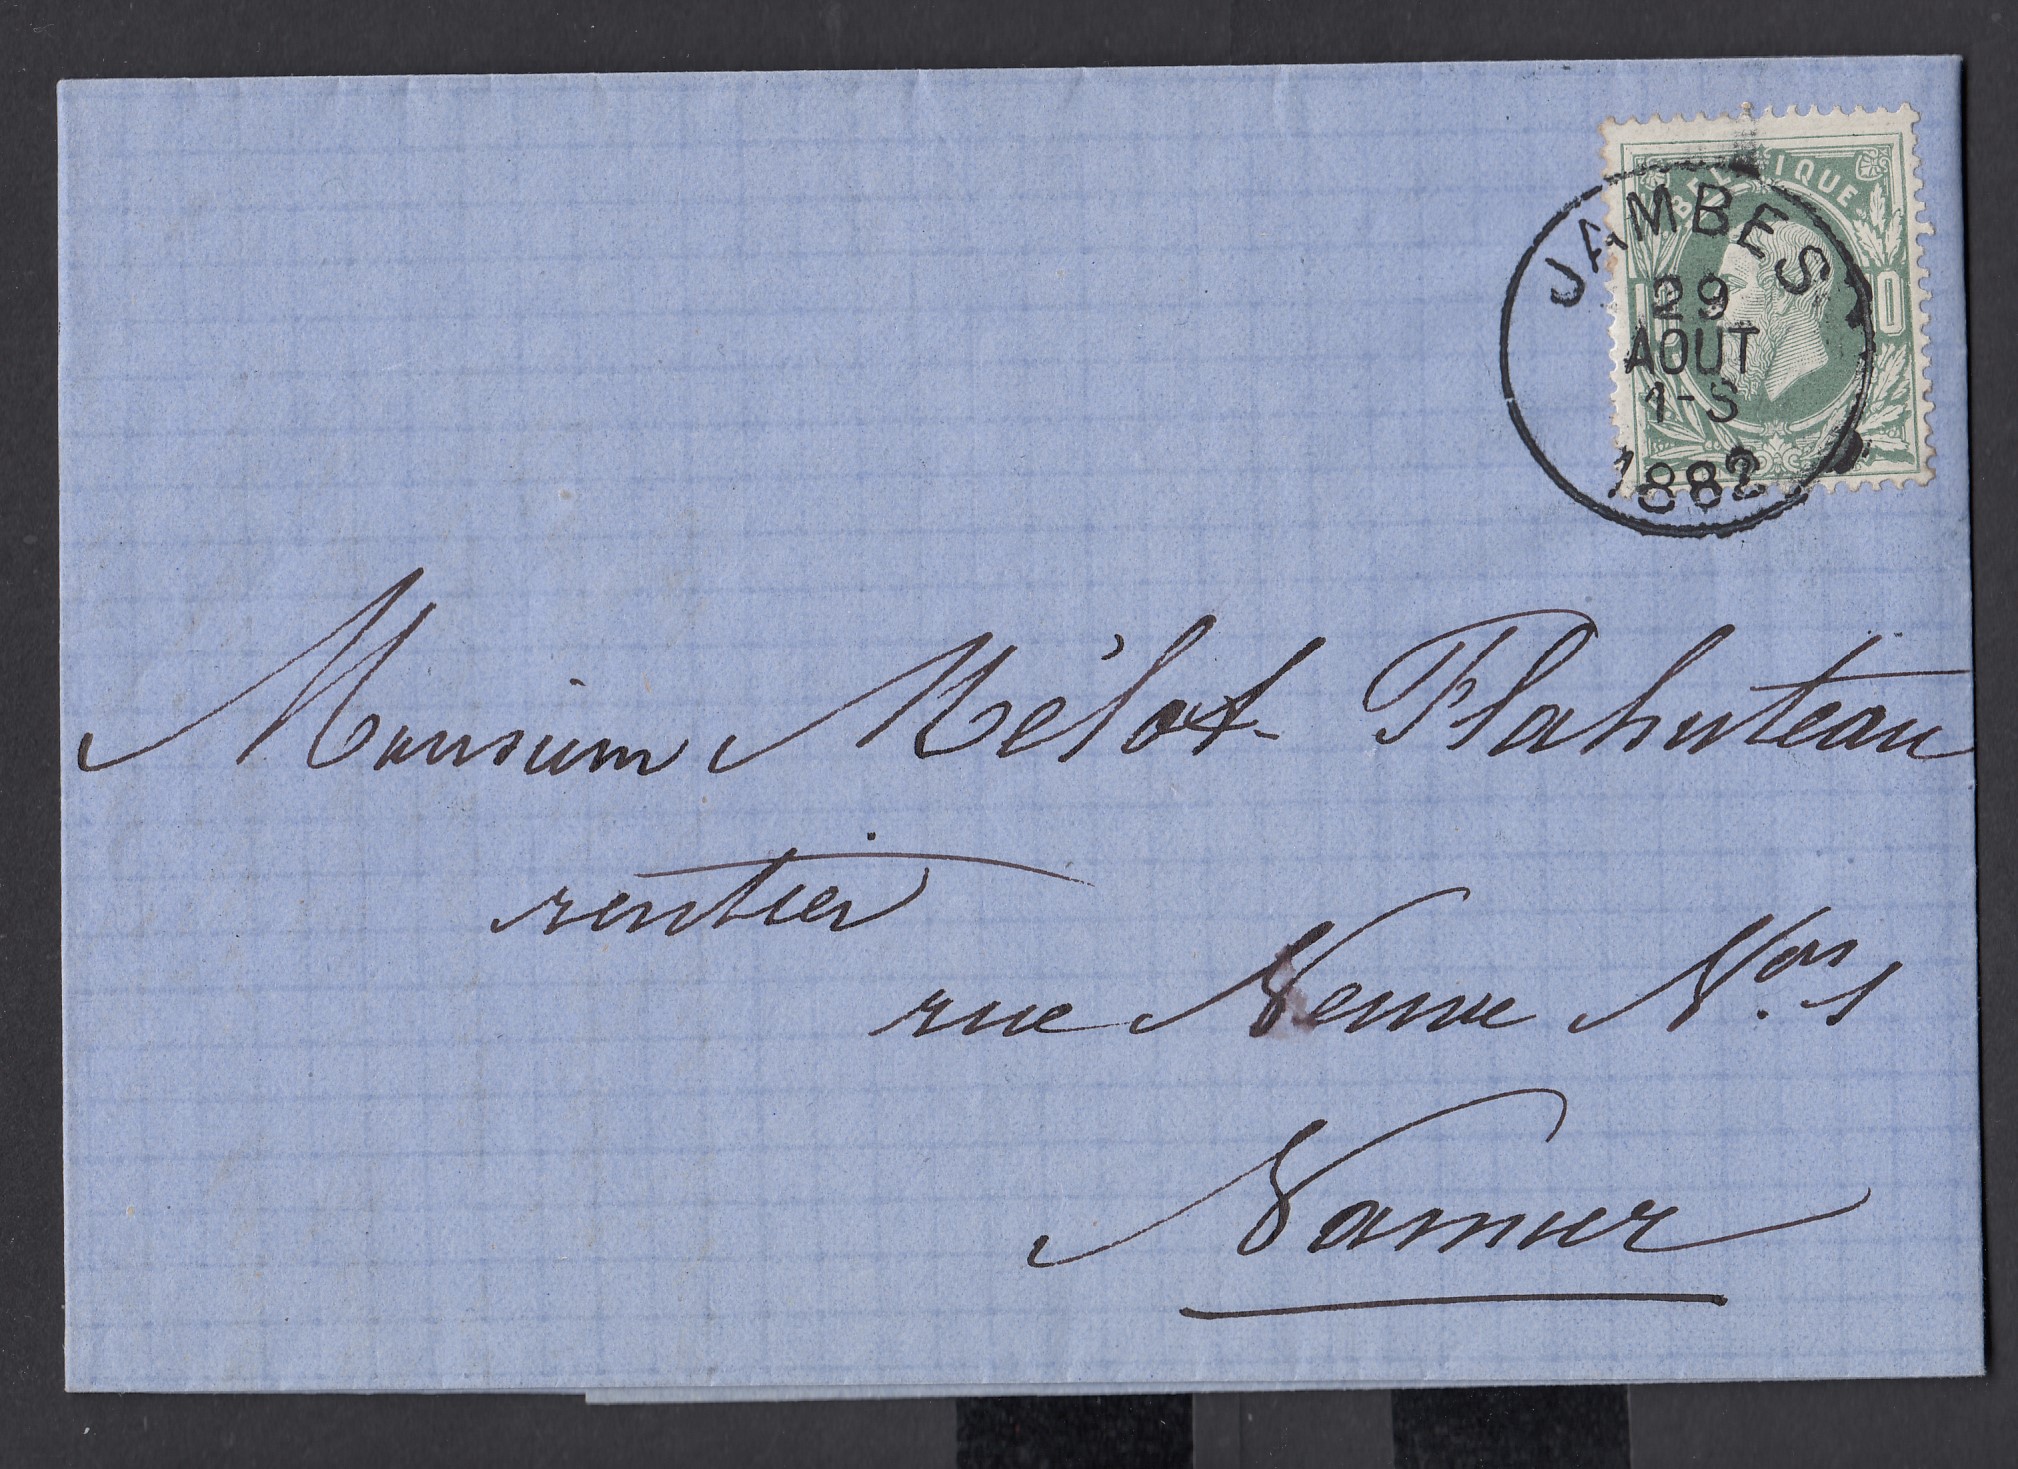 BELGIQUE
10
JAMBES
29
AOUT
1-S
1882
Monsieur Mélot Flahuteau
rentier
rue Neuve Nos. 1
Namur